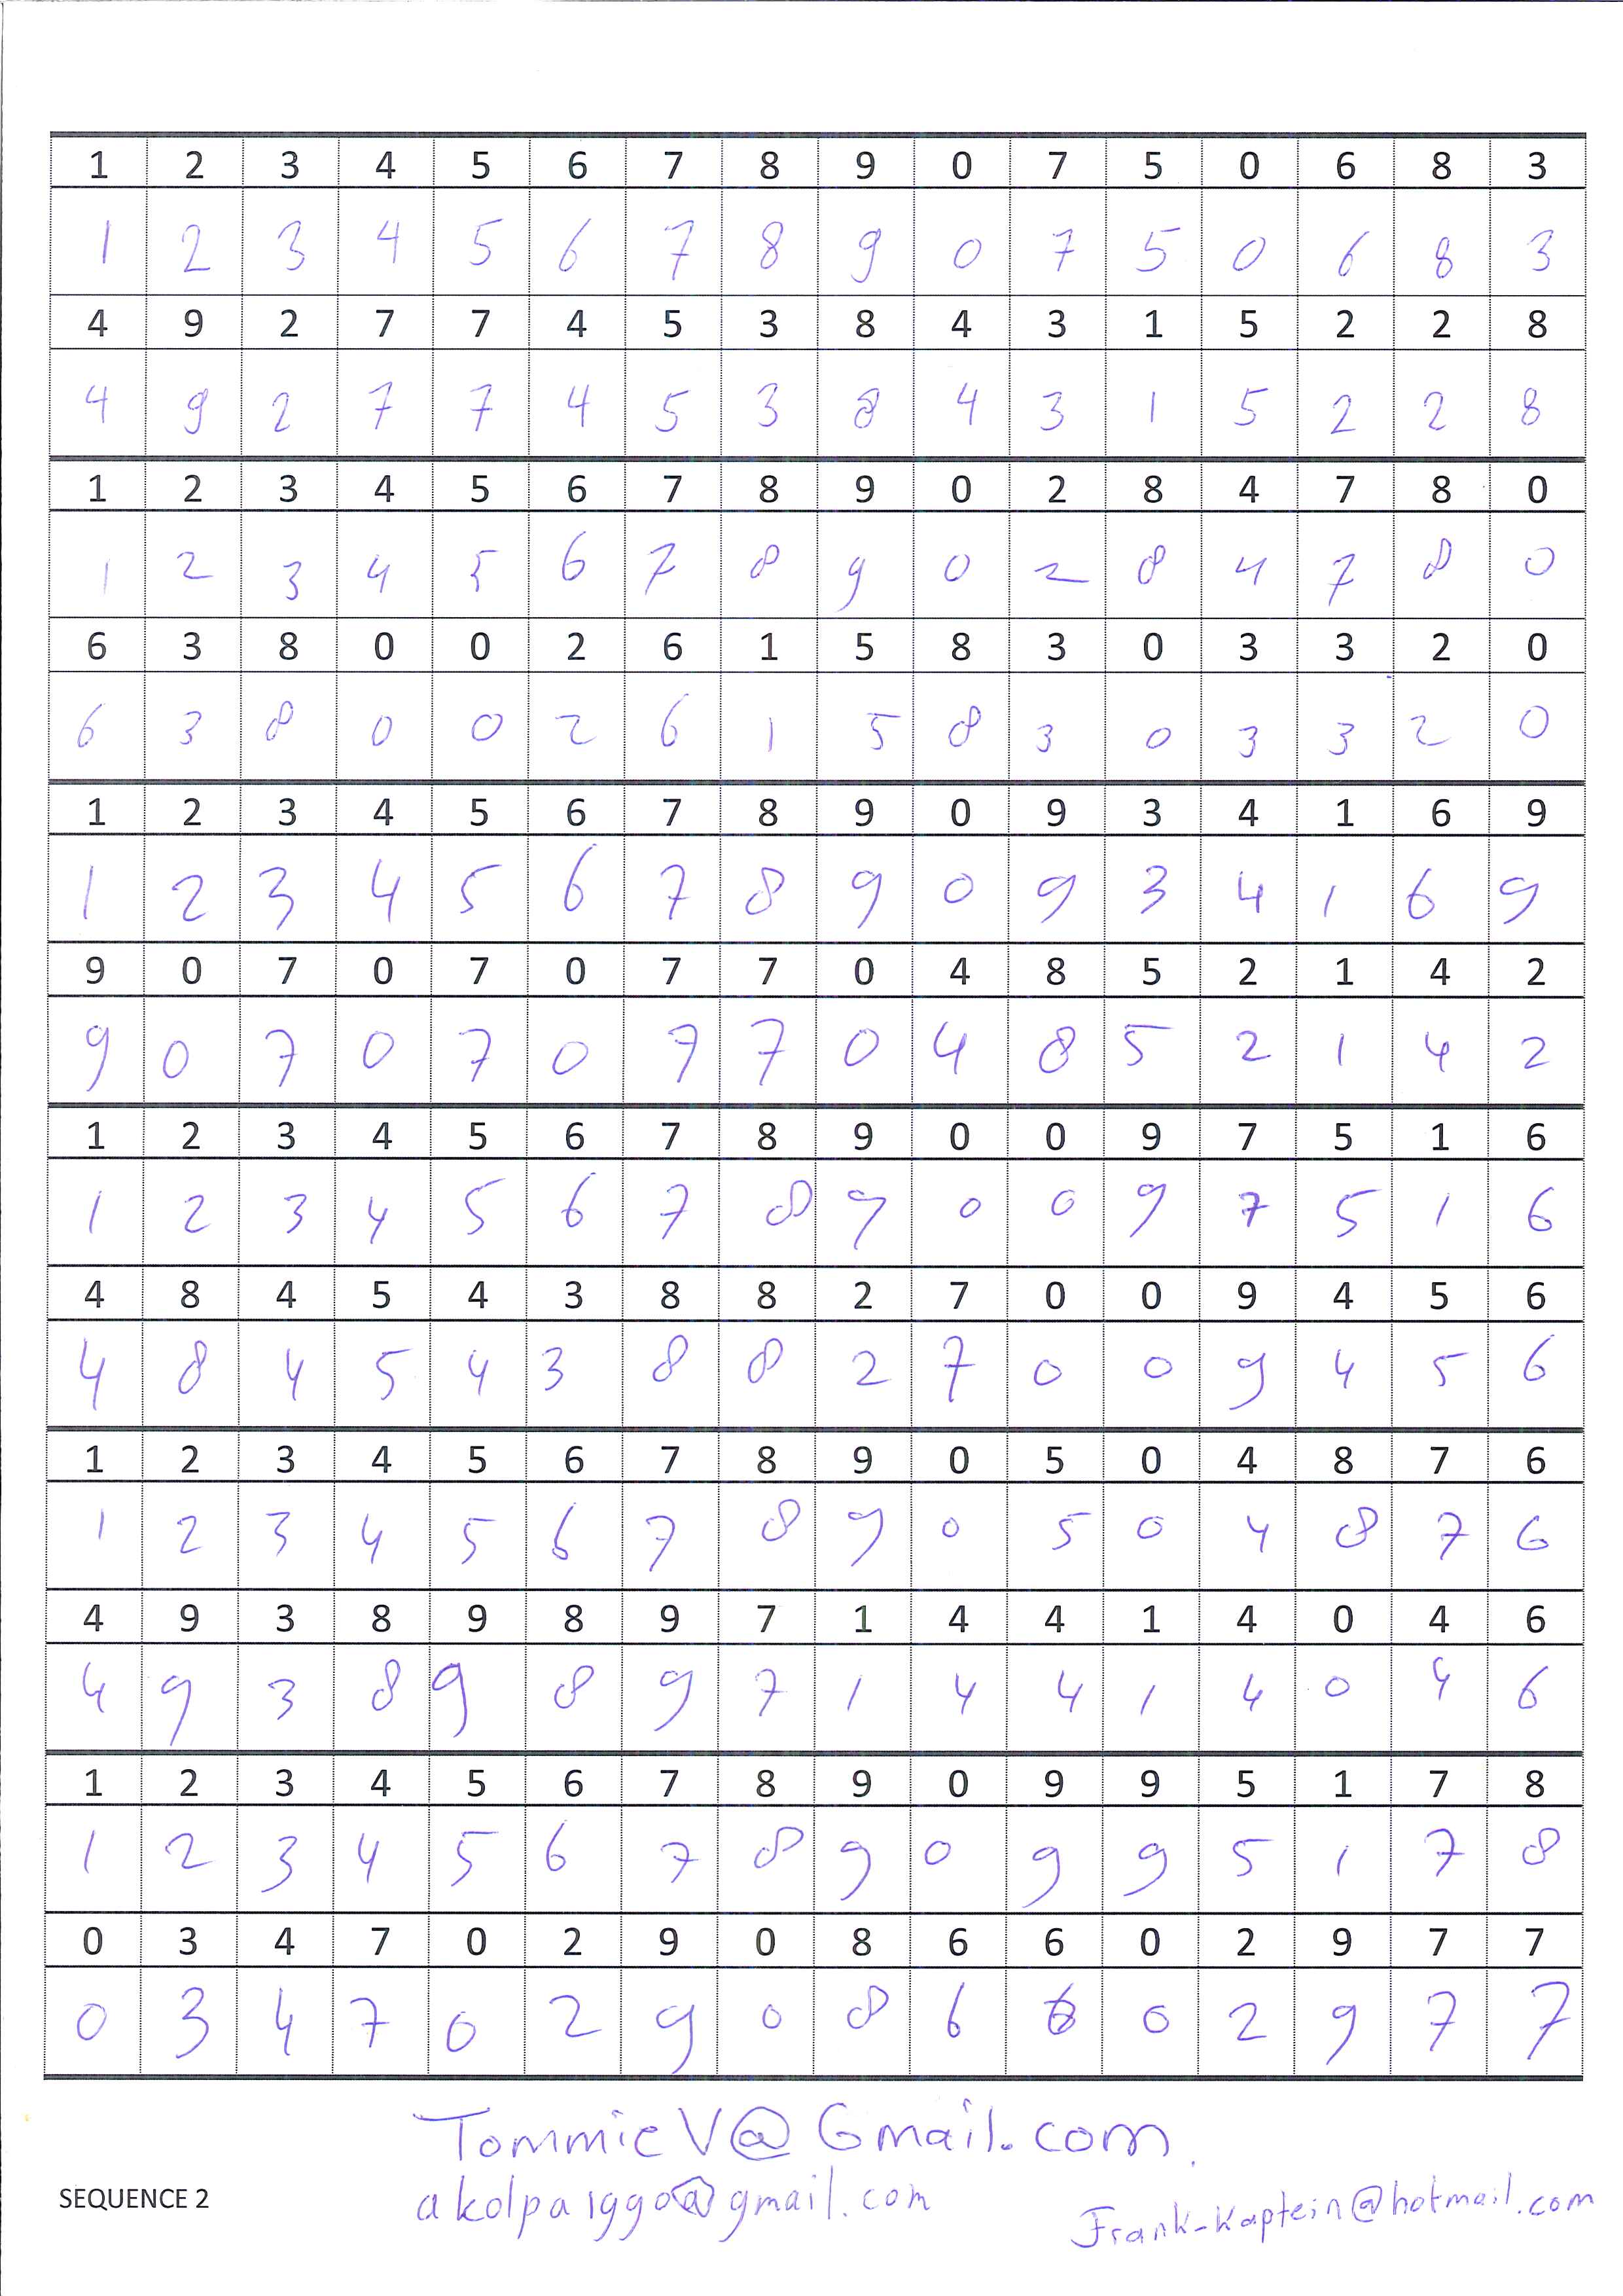 1 2 3 4 5 6 7 8 9 0 7 5 0 6 8 3
1 2 3 4 5 6 7 8 9 0 7 5 0 6 8 3
4 9 2 7 7 4 5 3 8 4 3 1 5 2 2 8
4 9 2 7 7 4 5 3 8 4 3 1 5 2 2 8
1 2 3 4 5 6 7 8 9 0 2 8 4 7 8 0
1 2 3 4 5 6 7 8 9 0 2 8 4 7 8 0
6 3 8 0 0 2 6 1 5 8 3 0 3 3 2 0
6 3 8 0 0 2 6 1 5 8 3 0 3 3 2 0
1 2 3 4 5 6 7 8 9 0 9 3 4 1 6 9
1 2 3 4 5 6 7 8 9 0 9 3 4 1 6 9
9 0 7 0 7 0 7 7 0 4 8 5 2 1 4 2
9 0 7 0 7 0 7 7 0 4 8 5 2 1 4 2
1 2 3 4 5 6 7 8 9 0 0 9 7 5 1 6
1 2 3 4 5 6 7 8 9 0 0 9 7 5 1 6
4 8 4 5 4 3 8 8 2 7 0 0 9 4 5 6
4 8 4 5 4 3 8 8 2 7 0 0 9 4 5 6
1 2 3 4 5 6 7 8 9 0 5 0 4 8 7 6
1 2 3 4 5 6 7 8 9 0 5 0 4 8 7 6
4 9 3 8 9 8 9 7 1 4 4 1 4 0 4 6
4 9 3 8 9 8 9 7 1 4 4 1 4 0 4 6
1 2 3 4 5 6 7 8 9 0 9 9 5 1 7 8
1 2 3 4 5 6 7 8 9 0 9 9 5 1 7 8
0 3 4 7 0 2 9 0 8 6 6 0 2 9 7 7
0 3 4 7 0 2 9 0 8 6 6 0 2 9 7 7
TommieV@Gmail.com
SEQUENCE 2 akolpa1990@gmail.com Frank-kaptein@hotmail.com